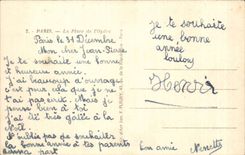 7. PARIS. — La Place de l'Opéra
Paris le 31 Décembre
Mon cher Jean-Pierre
Je te souhaite une bonne
et heureuse année.
J'ai beaucoup d'ouvrage
c'est pour cela que je ne
t'ai pas écrit. Mais je
pense bien à toi
J'ai été très gâtée à la
Noël.
N'oublie pas de souhaiter
la bonne année à tes parents
de ma part
Ton amie Ninette
je te souhaite
une bonne
année
Henri